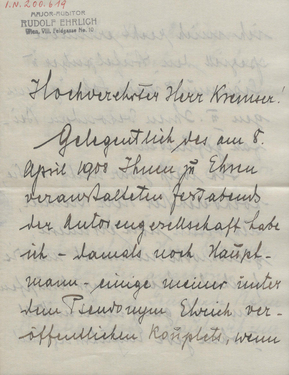 I.N. 200.619
MAJOR-AUDITOR
RUDOLF EHRLICH
Wien, VIII. Feldgasse No. 10
Hochverehrter Herr Kremser!
Gelegentlich des am 8.
April 1908 Ihnen zu Ehren
veranstalteten Festabends
der Autorengesellschaft habe
ich - damals noch Haupt-
mann - einige meiner unter
dem Pseudonym Elrich ver-
öffentlichen Kouplets, wenn